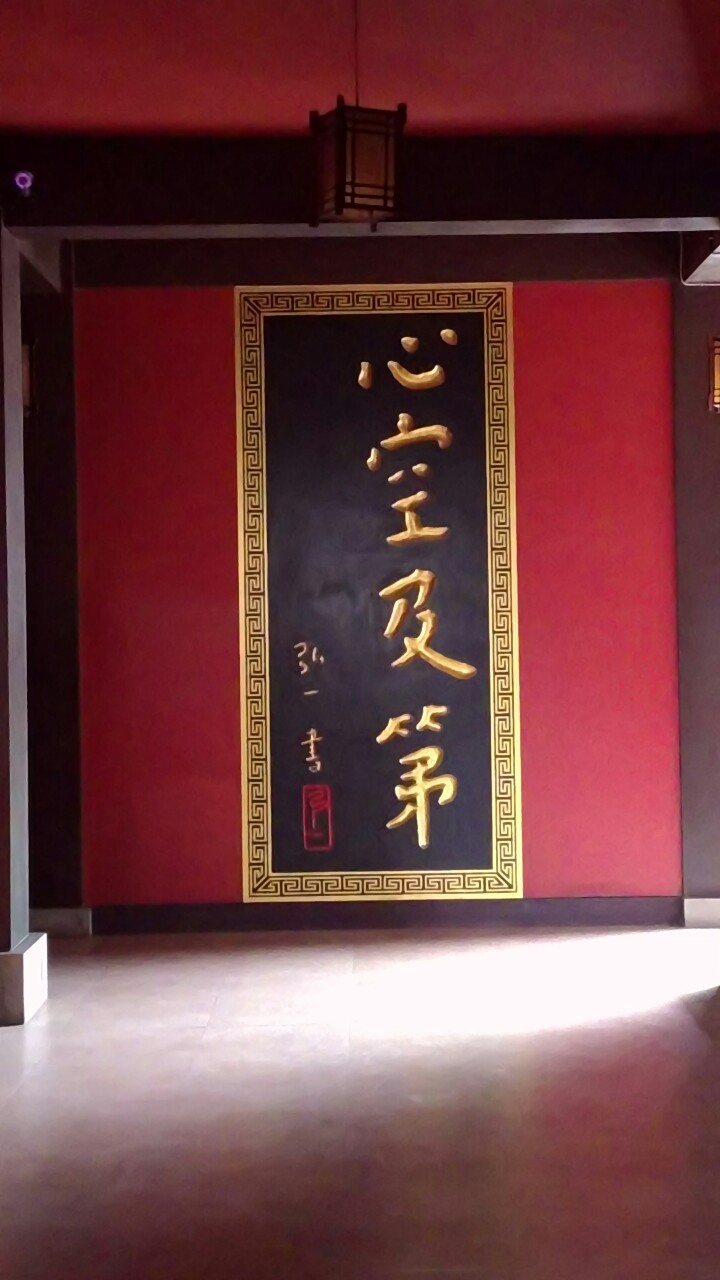 心空及第
弘一書